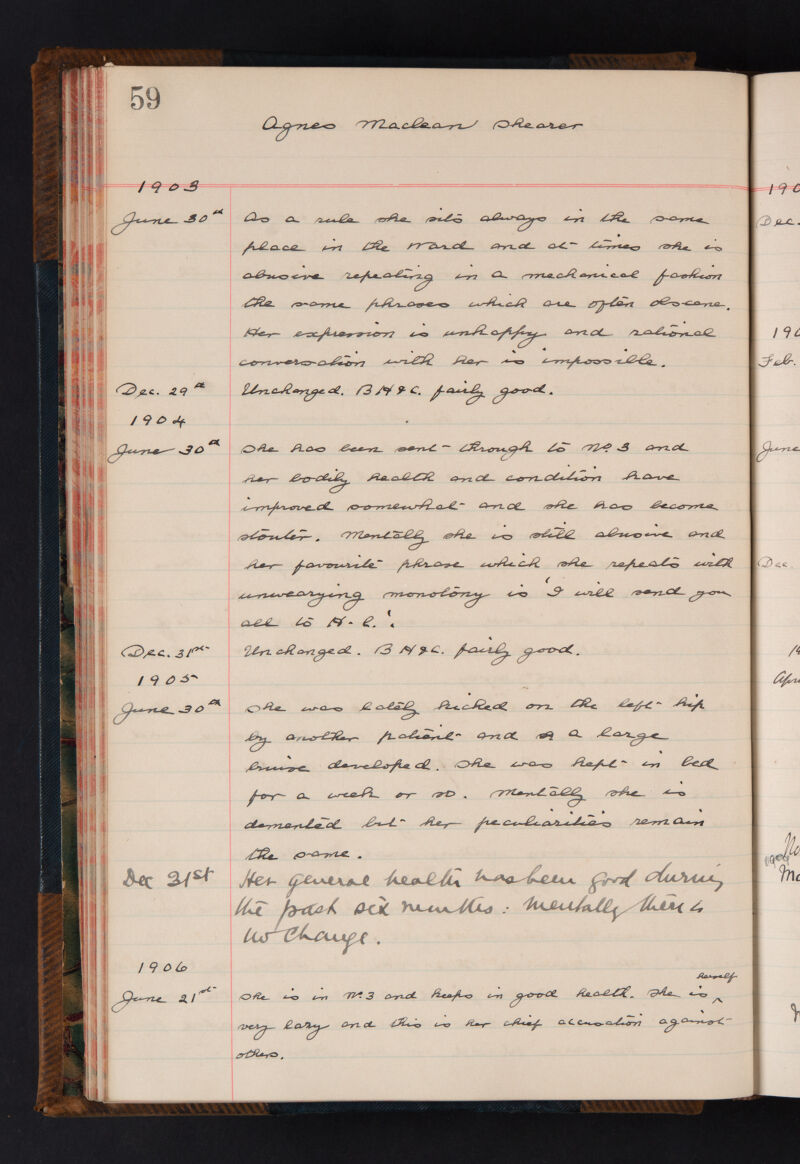 59
Agnes Maclean Shearer
1903
June 30th As a rule she sits always in the same
place in the ward and at times she is
abusive repeating in a mechanical fashion
the same phrases which are often obscene.
Her expression is unhappy and rational
conversation with her is impossible.
Dec. 29th Unchanged. B H & C. fairly good.
1904
June 30th She has been sent through to No. 3 and
her bodily health and condition have
improved somewhat and she has become
stouter. Mentally she is still abusive and
her favourite phrase which she repeats with
unwearying monotony is 'I will send you
all to H-l.'.
Dec. 31st Unchanged. B H & C. fairly good.
1905
June 30th She was lately kicked on the left hip
by another patient and a large
bruise developed. She was kept in bed
for a week or so. Mentally she is
demented but her peculiarities remain
the same.
Dec 31st Her general health has been good during
the past six months: mentally there is
no change.
1906
herself
June 21st She is in No. 3 and keeps in good health. She is ^
very lazy and this is her chief accusation against
others.
190
Dec.
190
Feb.
June
Dec
190